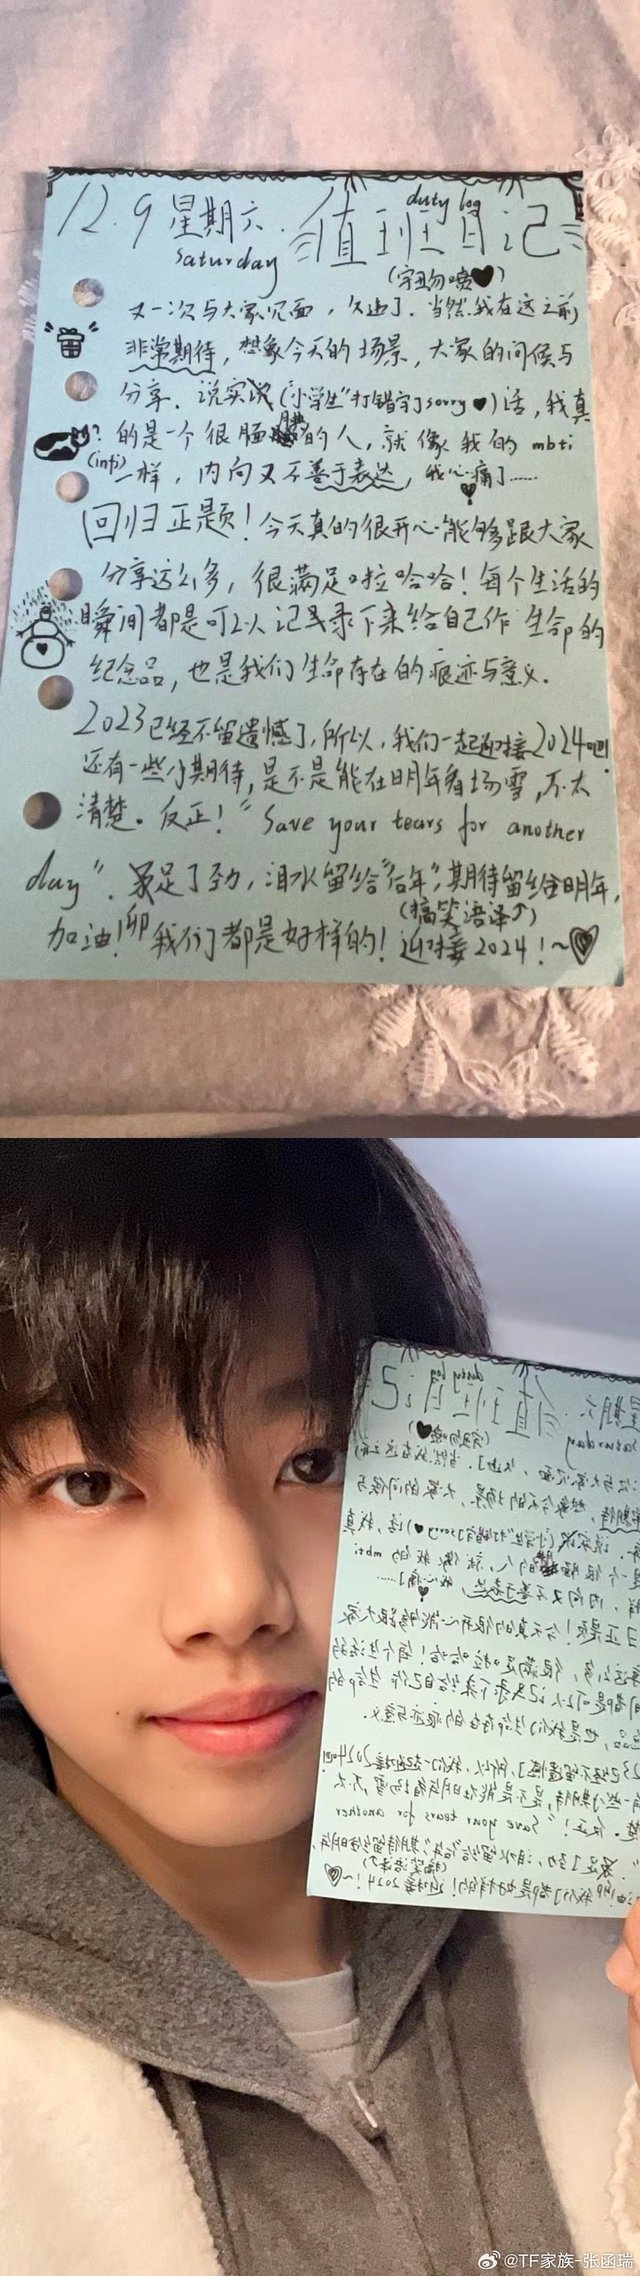 12.9 星期六 值班日记
duty log
saturday
(字丑勿喷♥)
又一次与大家见面，久违了。当然我在这之前
非常期待，想象今天的场景，大家的问候与
分享。说实说("小学生"打错字了sorry♥)话，我真
的是一个很腼腆的人，就像我的mbti
(infj)一样，内向又不善于表达，我心痛了……
回归正题！今天真的很开心能够跟大家
分享这么多，很满足啦哈哈！每个生活的
瞬间都是可以记录下来给自己作生命的
纪念品，也是我们生命存在的痕迹与意义.
2023已经不留遗憾了，所以，我们一起迎接2024吧!
还有一些小期待，是不是能在明年看场雪，不太
清楚。反正！"Save your tears for another
day". 攒足了劲，泪水留给"后年"，期待留给明年，
(搞笑语译↑)
加油！卯 我们都是好样的！迎接2024！~
@TF家族-张函瑞